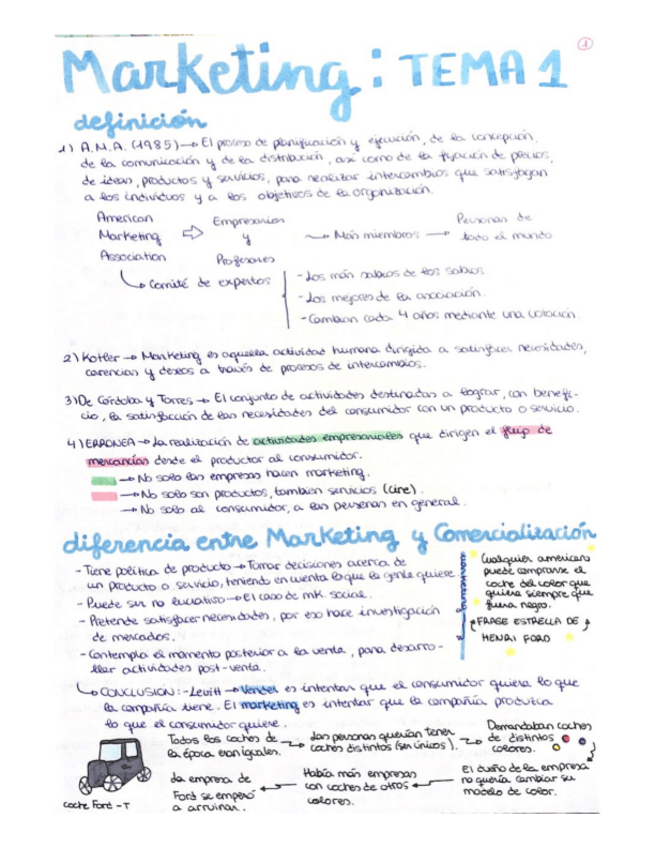 1
Marketing: TEMA 1
definición
1) A.M.A. (1985) → El proceso de planificación y ejecución, de la concepción,
de la comunicación y de la distribución, así como de la fijación de precios,
de ideas, productos y servicios, para realizar intercambios que satisfagan
a los individuos y a los objetivos de la organización.
American
Marketing
Association
⇨ Empresarios
y
Profesores
→ Más miembros → Personas de
todo el mundo
↳ Comité de expertos
- Los más sabios de los sabios.
- Los mejores de la asociación.
- Cambian cada 4 años mediante una votación.
2) Kotler → Marketing es aquella actividad humana dirigida a satisfacer necesidades,
carencias y deseos a través de procesos de intercambios.
3) De Córdoba y Torres → El conjunto de actividades destinadas a lograr, con benefi-
cio, la satisfacción de las necesidades del consumidor con un producto o servicio.
4) ERRONEA → La realización de actividades empresariales que dirigen el flujo de
mercancías desde el productor al consumidor.
→ No solo las empresas hacen marketing.
→ No solo son productos, tambien servicios (cine).
→ No solo al consumidor, a las personas en general.
diferencia entre Marketing y Comercialización
- Tiene política de producto → Tomar decisiones acerca de
un producto o servicio, teniendo en cuenta lo que la gente quiere.
- Puede ser no lucrativo → El caso de mk. social.
- Pretende satisfacer necesidades, por eso hace investigación
de mercados.
- Contempla el momento posterior a la venta, para desarro-
llar actividades post-venta.
Cualquier americano
puede comprarse el
coche del color que
quiera siempre que
fuera negro.
FRASE ESTRELLA DE
HENRI FORD
↳ CONCLUSION: - Levitt → Vender es intentar que el consumidor quiera lo que
la compañía tiene. El marketing es intentar que la compañía produzca
lo que el consumidor quiere.
Todos los coches de
la época eran iguales.
→ Las personas querían tener
coches distintos (ser únicos).
→ Demandaban coches
de distintos
colores.
El dueño de la empresa
no quería cambiar su
modelo de color.
← Había más empresas
con coches de otros
colores.
← La empresa de
Ford se empezó
a arruinar.
coche Ford-T